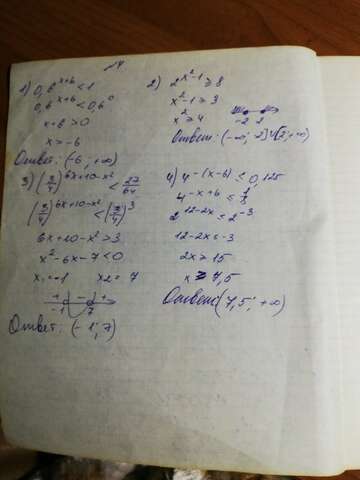 №4
1) 0,6^{x+6} < 1
0,6^{x+6} < 0,6^0
x+6 > 0
x > -6
Ответ: (-6; +∞)
2) 2^{x²-1} ≥ 8
x²-1 ≥ 3
x² ≥ 4
-2 2
Ответ: (-∞; -2]∪[2; +∞)
3) (3/4)^{6x+10-x²} < 27/64
(3/4)^{6x+10-x²} < (3/4)^3
6x+10-x² > 3
x²-6x-7 < 0
x₁ = -1 x₂ = 7
+ - +
-1 7
Ответ: (-1; 7)
4) 4^{-(x-6)} ≤ 0,125
4^{-x+6} ≤ 1/8
2^{12-2x} ≤ 2^{-3}
12-2x ≤ -3
2x ≥ 15
x ≥ 7,5
Ответ: (7,5; +∞)